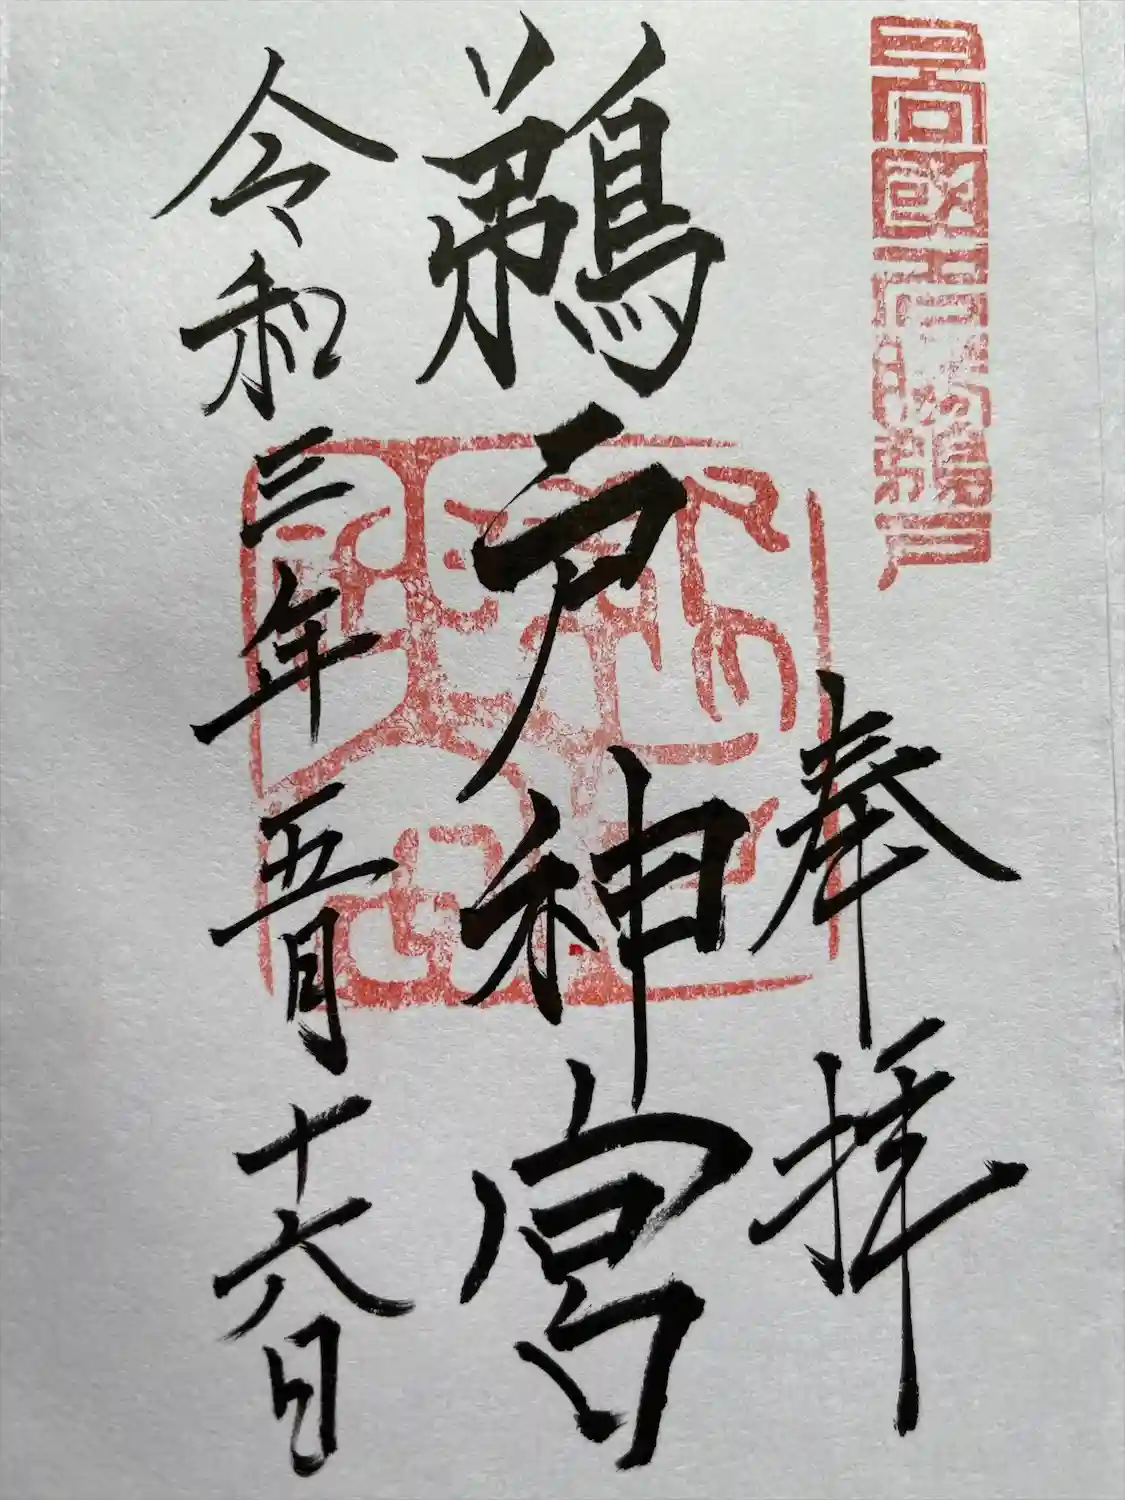 日向國鵜戸
奉拝
鵜戸神宮
令和三年五月十六日